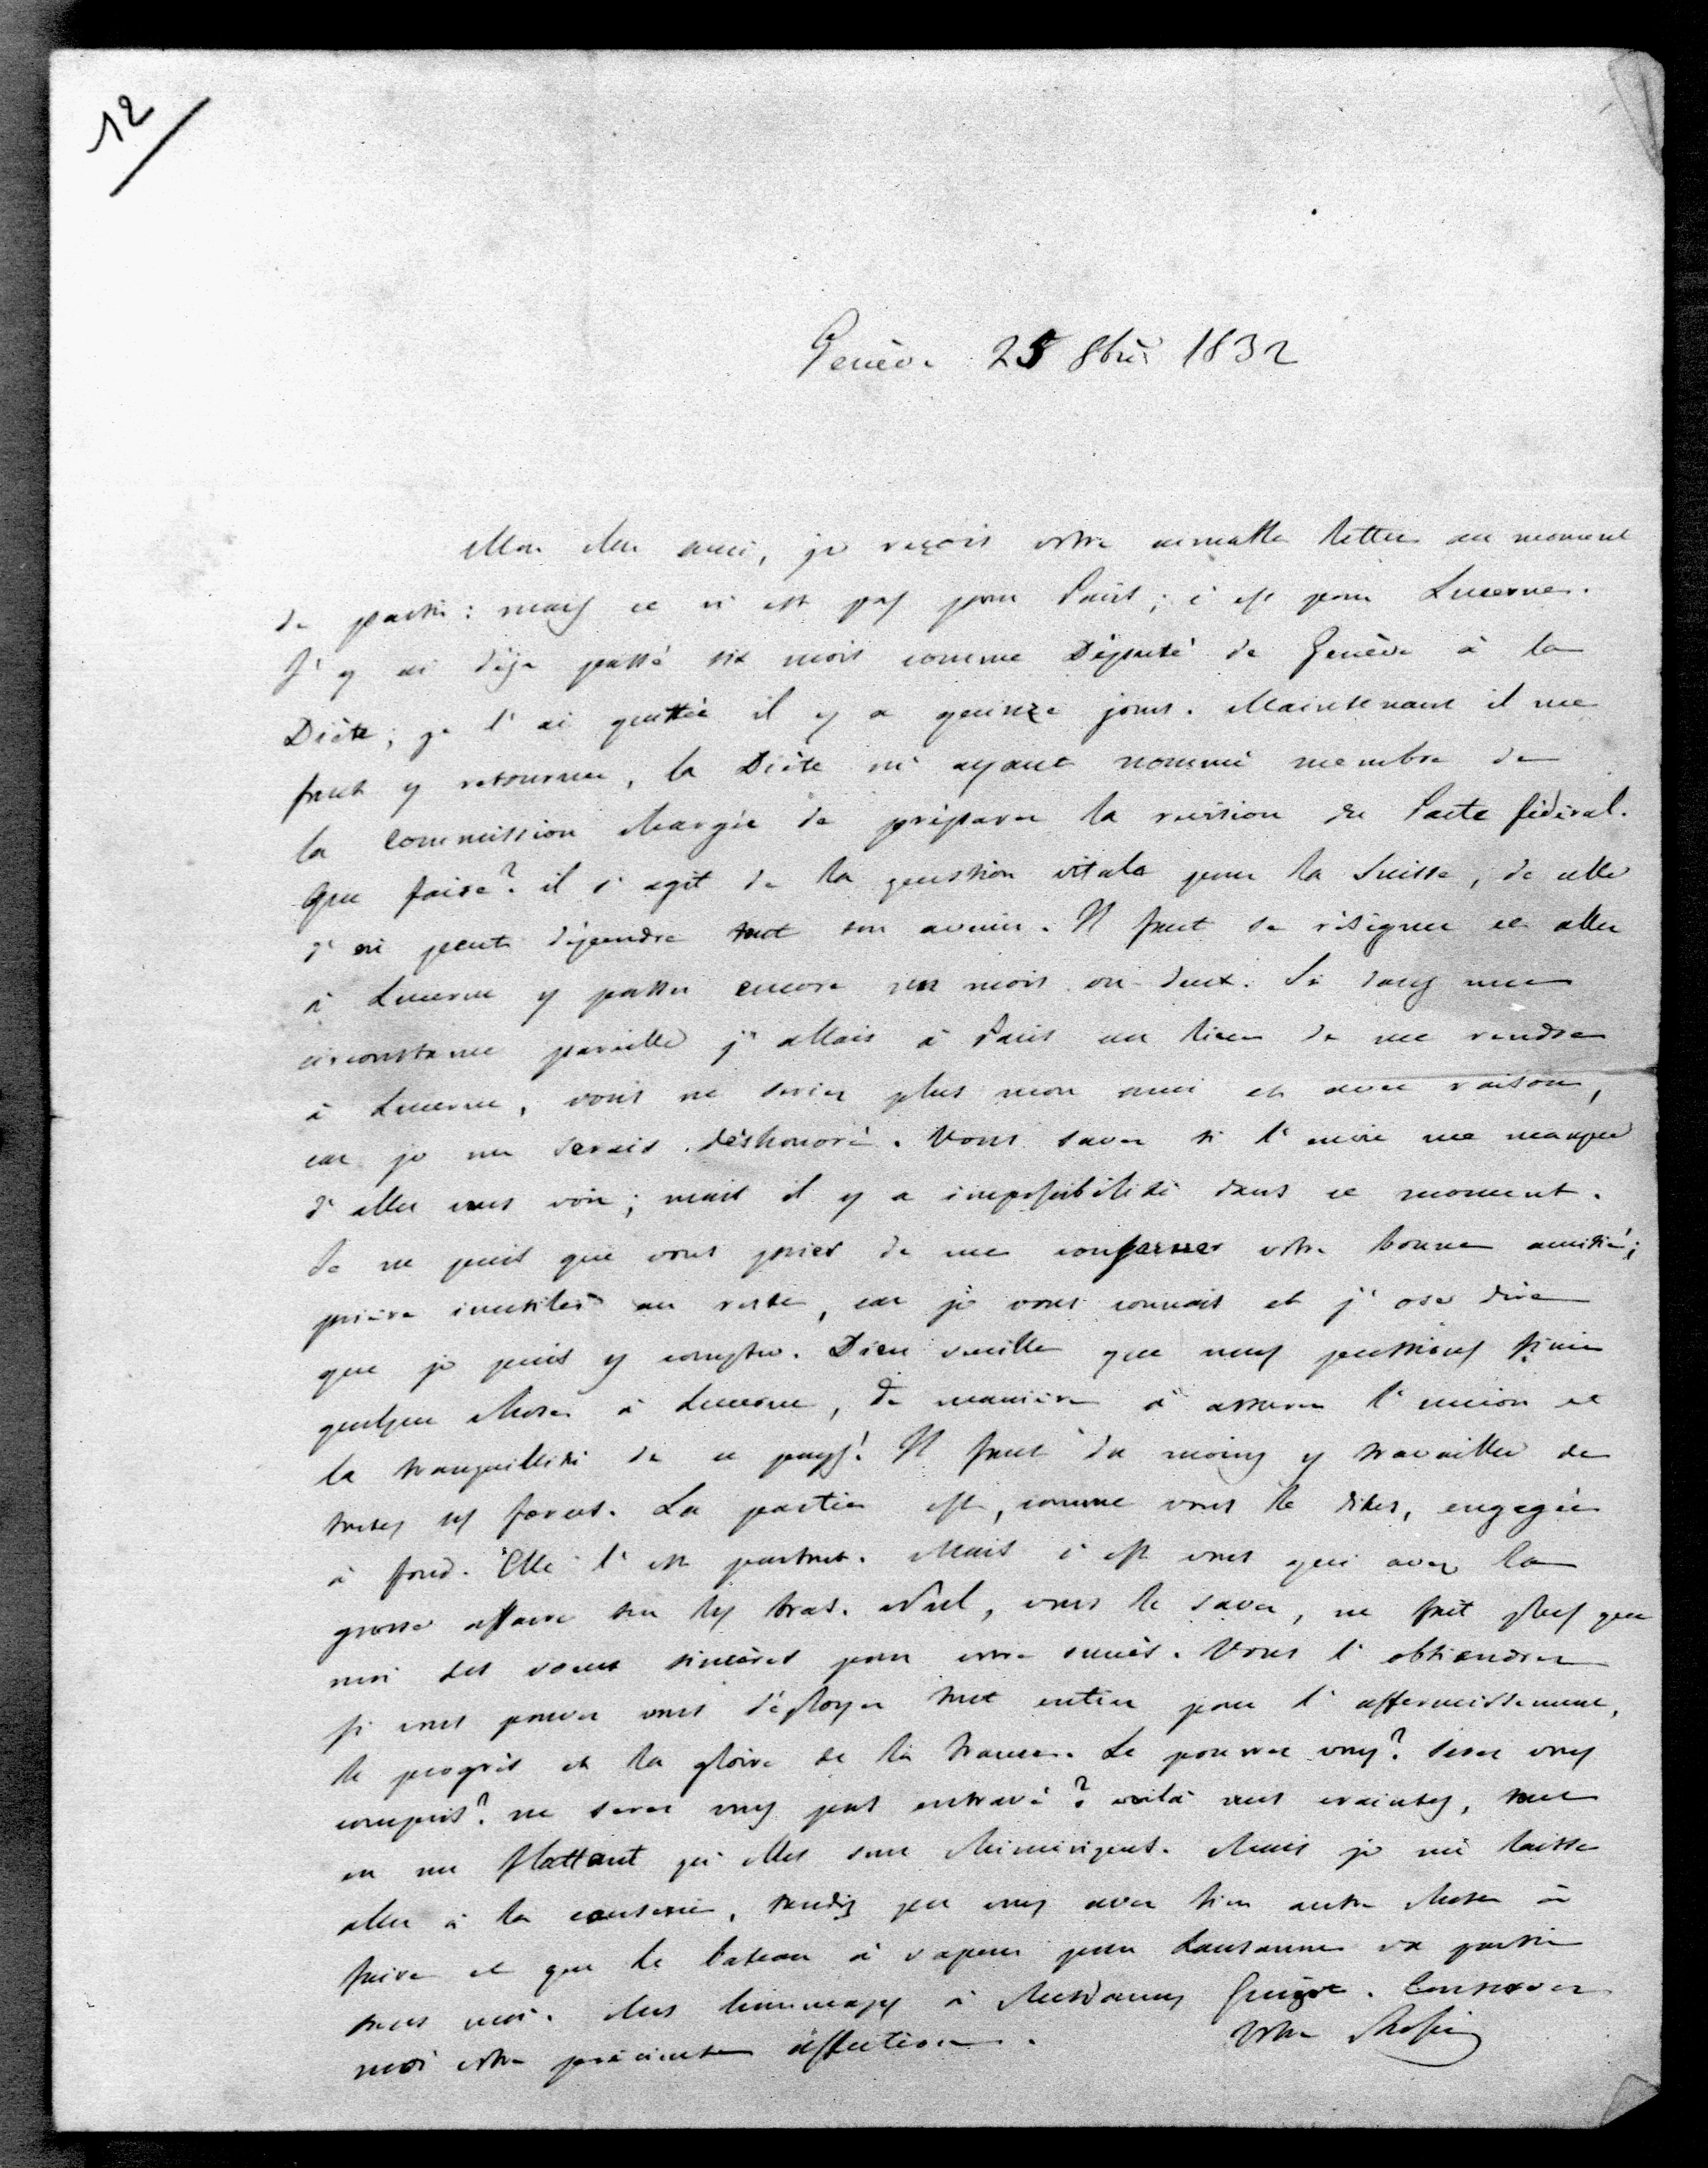 12
Genève 25 8bre 1832
Mon cher ami, je reçois votre aimable lettre au moment
de partir : mais ce n'est pas pour Paris ; c'est pour Lucerne.
J'y ai déja passé six mois comme Député de Genève à la
Diète ; je l'ai quittée il y a quinze jours. Maintenant il me
faut y retourner, la Diète m'ayant nommé membre de
la Commission chargée de préparer la révision du Pacte fédéral.
Que faire ? il s'agit de la question vitale pour la Suisse, de celle
d'où peut dépendre tout son avenir. Il faut se résigner et aller
à Lucerne y passer encore un mois ou deux. Si dans une
circonstance pareille j'allais à Paris au lieu de me rendre
à Lucerne, vous ne seriez plus mon ami et avec raison,
car je me serais déshonoré. Vous savez si l'envie me manque
d'aller vous voir ; mais il y a impossibilité dans ce moment.
Je ne puis que vous prier de me conserver votre bonne amitié ;
prière inutile au reste, car je vous connais et j'ose dire
que je puis y compter. Dieu veuille que nous puissions finir
quelque chose à Lucerne, de manière à assurer l'union et
la tranquillité de ce pays ! Il faut du moins y travailler de
toutes ses forces. La partie est, comme vous le dites, engagée
à fond. Elle l'est partout. Mais c'est vous qui avez la
grosse affaire sur les bras. Nul, vous le savez, ne fait plus que
moi des vœux sincères pour votre succès. Vous l'obtiendrez
si vous pouvez vous déployer tout entier pour l'affermissement,
le progrès et la gloire de la France. Le pourrez vous ? serez vous
compris ? ne serez vous pas entravé ? voilà mes craintes, tout
en me flattant qu'elles sont chimériques. Mais je me laisse
aller à la causerie, tandis que vous avez bien autre chose à
faire et que le bateau à vapeur pour Lausanne va partir
sans moi. Mes hommages à Mesdames Guizot. Conservez
moi votre précieuse affection. Votre Rossi